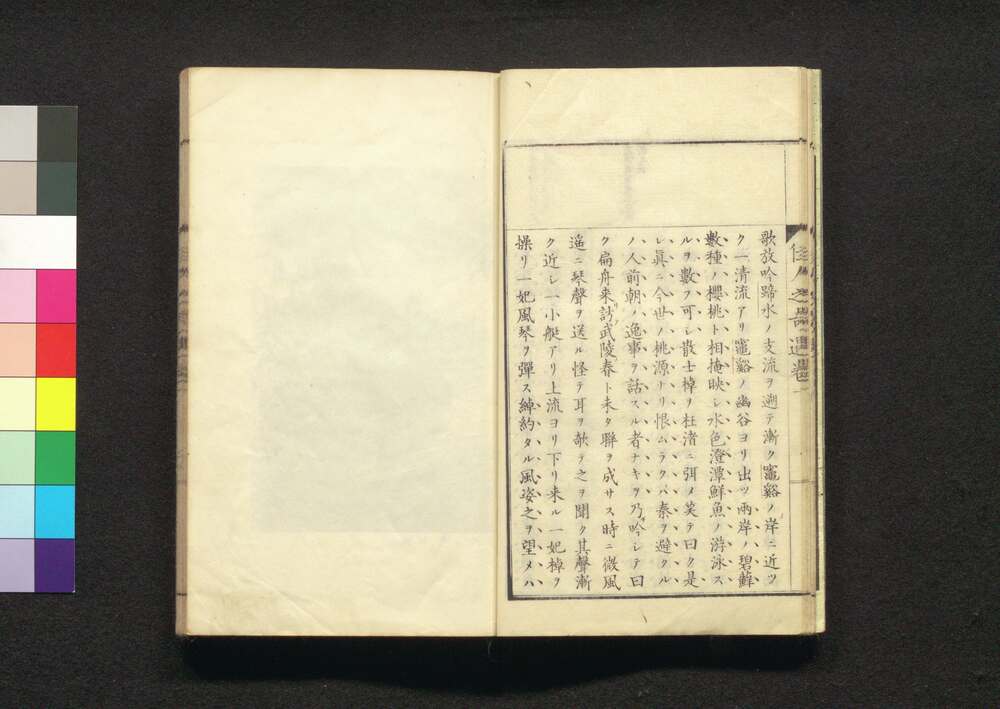 佳人之奇遇卷一
歌放吟蹄水ノ支流ヲ遡テ漸ク竈谿ノ岸ニ近ツ
ク一清流アリ竈谿ノ幽谷ヨリ出ツ兩岸ノ碧蘚
數種ハ櫻桃ト相掩映シ水色澄潭鮮魚ノ游泳ス
ルヲ數フ可シ散士棹ヲ杜渚ニ弭メ笑テ曰ク是
レ眞ニ今世ノ桃源ナリ恨ムラクハ秦ヲ避クル
ノ人前朝ノ逸事ヲ話スル者ナキヲ乃吟シテ曰
ク扁舟来訪武陵春ト未タ聯ヲ成サス時ニ微風
遥ニ琴聲ヲ送ル怪テ耳ヲ欹テ之ヲ聞ク其聲漸
ク近シ一小艇アリ上流ヨリ下リ来ル一妃棹ヲ
操リ一妃風琴ヲ彈ス綽約タル風姿之ヲ望メハ